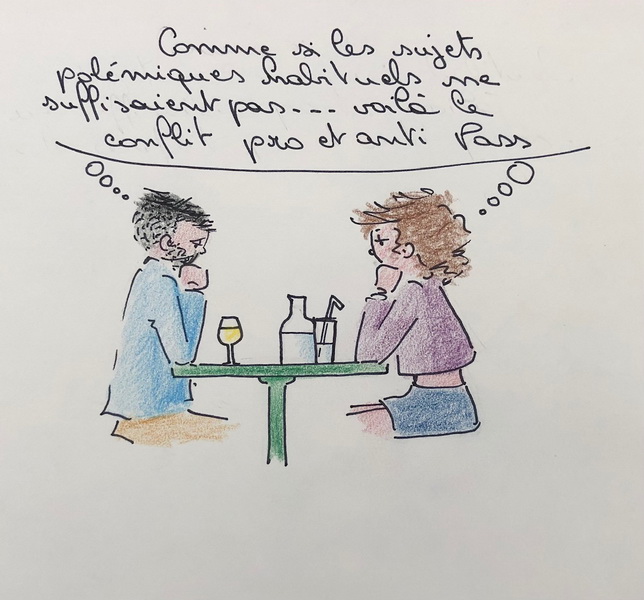 Comme si les sujets
polémiques habituels ne
suffisaient pas... voilà le
conflit pro et anti Pass